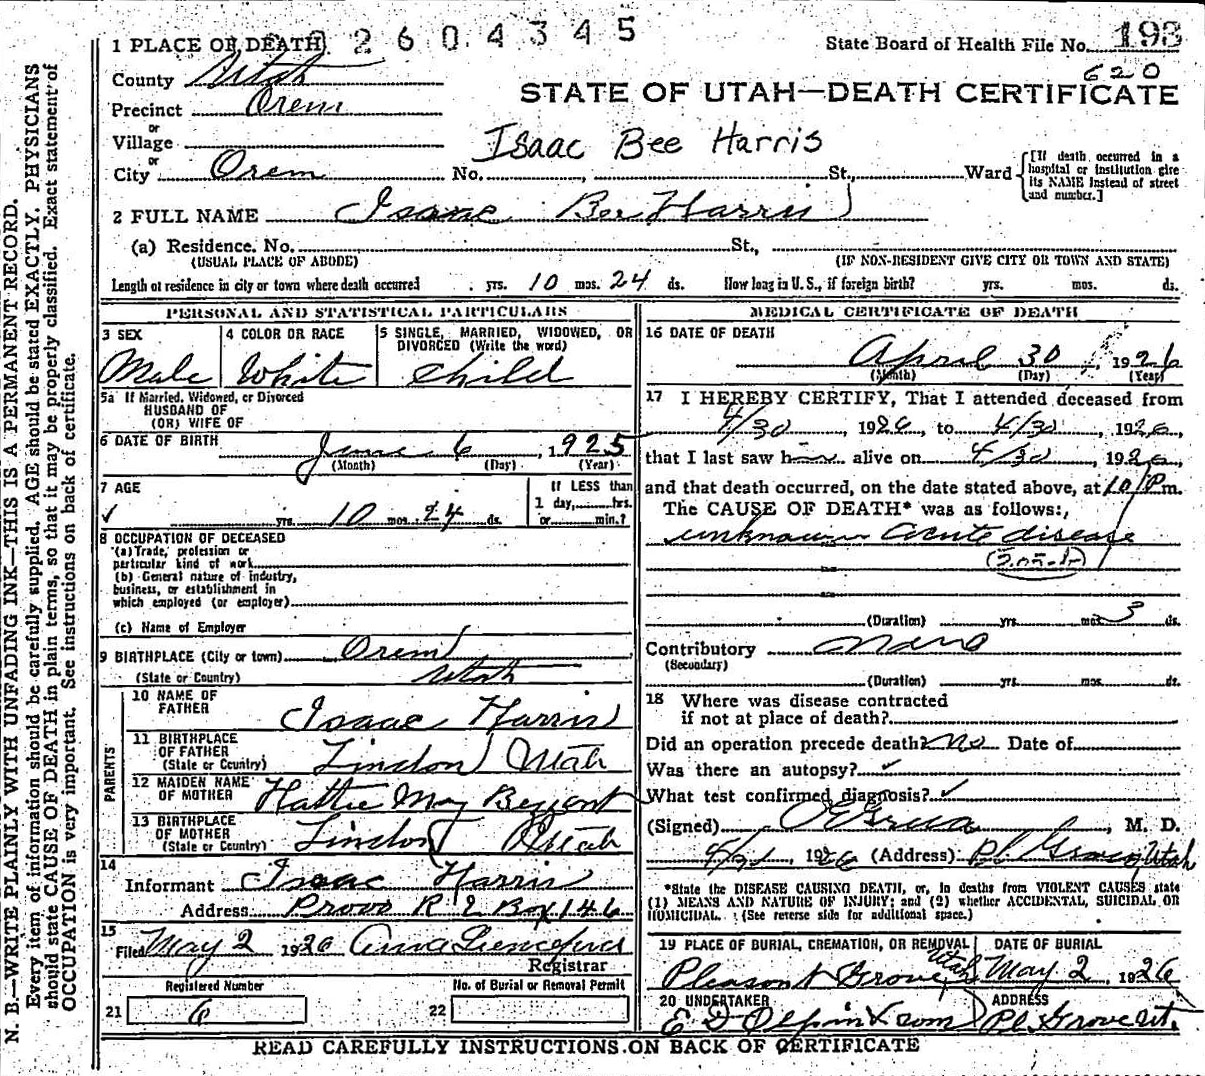 2604345
1 PLACE OF DEATH
State Board of Health File No. 193
County Utah
620
Precinct Orem
STATE OF UTAH—DEATH CERTIFICATE
or
Village
Isaac Bee Harris
or
City Orem No. , St., Ward
[If death occurred in a
hospital or institution give
its NAME instead of street
and number.]
2 FULL NAME Isaac Bee Harris
(a) Residence. No. St.,
(USUAL PLACE OF ABODE) (IF NON-RESIDENT GIVE CITY OR TOWN AND STATE)
Length of residence in city or town where death occurred yrs. 10 mos. 24 ds. How long in U. S., if foreign birth? yrs. mos. ds.
PERSONAL AND STATISTICAL PARTICULARS
3 SEX 4 COLOR OR RACE 5 SINGLE, MARRIED, WIDOWED, OR
DIVORCED (Write the word)
Male White Child
5a If Married, Widowed, or Divorced
HUSBAND OF
(OR) WIFE OF
6 DATE OF BIRTH June 6, 1925
(Month) (Day) (Year)
7 AGE If LESS than
1 day, hrs.
yrs. 10 mos. 24 ds. or min.?
8 OCCUPATION OF DECEASED
(a) Trade, profession or
particular kind of work
(b) General nature of industry,
business, or establishment in
which employed (or employer)
(c) Name of Employer
9 BIRTHPLACE (City or town) Orem
(State or Country) Utah
PARENTS
10 NAME OF
FATHER Isaac Harris
11 BIRTHPLACE
OF FATHER
(State or Country) Lindon Utah
12 MAIDEN NAME
OF MOTHER Hattie May
13 BIRTHPLACE
OF MOTHER
(State or Country) Lindon Utah
14
Informant Isaac Harris
Address Provo R 2 Box 146
15
Filed May 2 1926 Anna
Registrar
Registered Number No. of Burial or Removal Permit
21 6 22
MEDICAL CERTIFICATE OF DEATH
16 DATE OF DEATH
April 30, 1926
(Month) (Day) (Year)
17 I HEREBY CERTIFY, That I attended deceased from
4/30, 1926, to 4/30, 1926,
that I last saw him alive on 4/30, 1926,
and that death occurred, on the date stated above, at 10 P m.
The CAUSE OF DEATH* was as follows:
unknown acute disease
(Duration) yrs. mos. 3 ds.
Contributory none
(Secondary)
(Duration) yrs. mos. ds.
18 Where was disease contracted
if not at place of death?
Did an operation precede death? no Date of
Was there an autopsy? ✓
What test confirmed diagnosis? ✓
(Signed) , M. D.
1926 (Address) Pl Grove, Utah
*State the DISEASE CAUSING DEATH, or, in deaths from VIOLENT CAUSES, state
(1) MEANS AND NATURE OF INJURY; and (2) whether ACCIDENTAL, SUICIDAL OR
HOMICIDAL. (See reverse side for additional space.)
19 PLACE OF BURIAL, CREMATION, OR REMOVAL DATE OF BURIAL
Pleasant Grove Utah May 2, 1926
20 UNDERTAKER ADDRESS
E D Olpin & Sons Pl Grove Ut.
READ CAREFULLY INSTRUCTIONS ON BACK OF CERTIFICATE
N. B.—WRITE PLAINLY WITH UNFADING INK—THIS IS A PERMANENT RECORD.
Every item of information should be carefully supplied. AGE should be stated EXACTLY. PHYSICIANS
should state CAUSE OF DEATH in plain terms, so that it may be properly classified. Exact statement of
OCCUPATION is very important. See instructions on back of certificate.